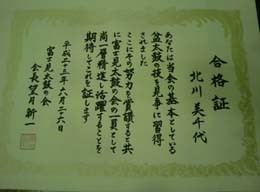 合格証
北川美千代
あなたは当会の基本としている
盆太鼓の技を見事に習得
されました
ここにその努力を賞讃すると共
に富士見太鼓の会の一員として
尚一層精進し活躍することを
期待してこれを証します
平成二十三年六月二十六日
富士見太鼓の会
会長望月新一